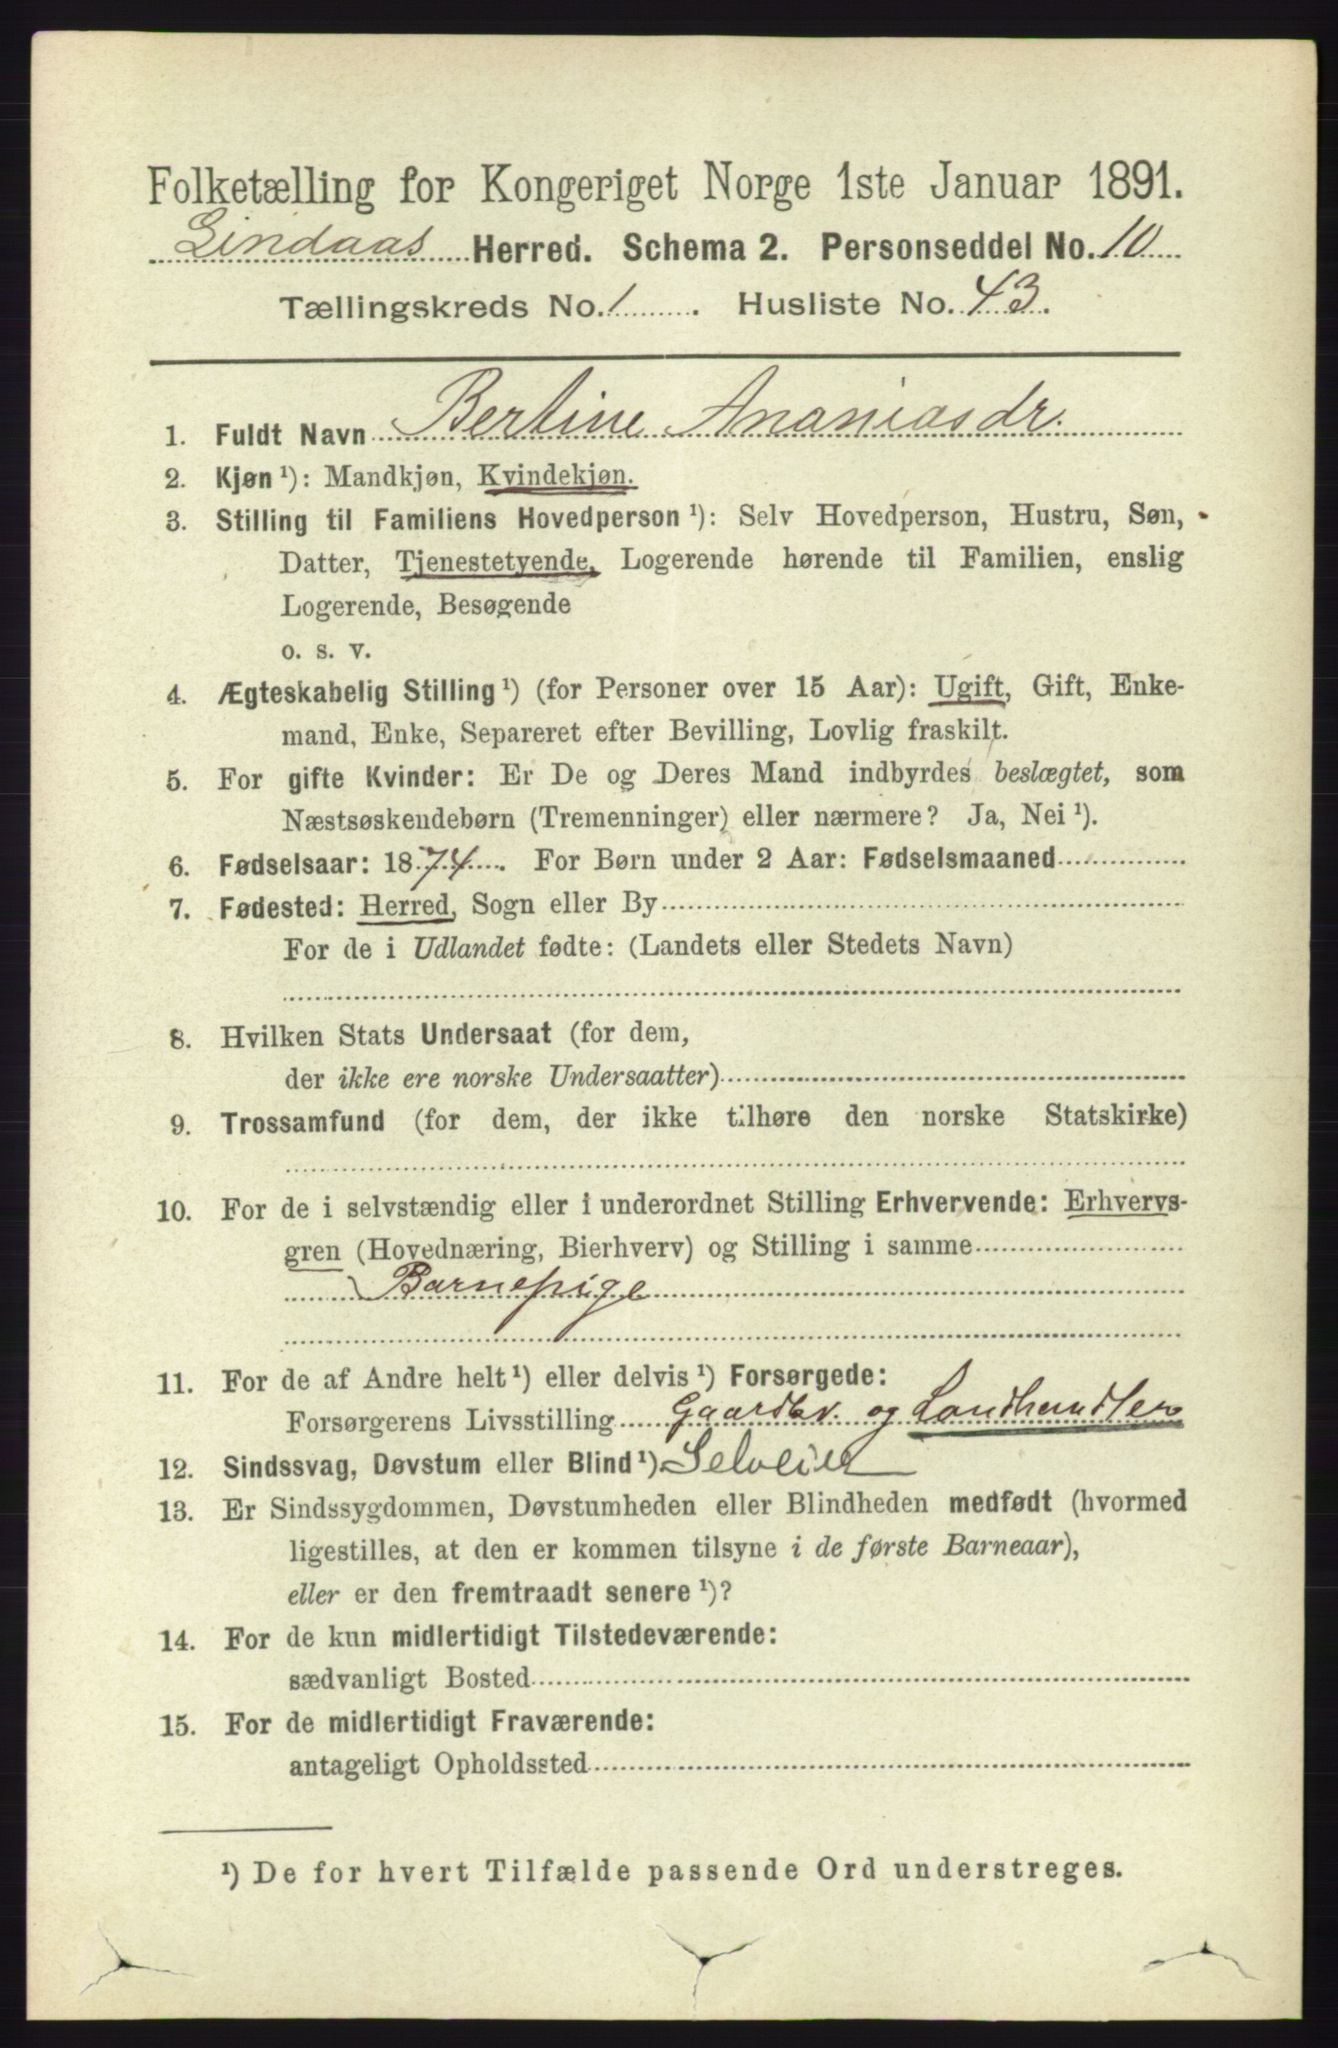 Folketælling for Kongeriget Norge 1ste Januar 1891.
Lindaas Herred. Schema 2. Personseddel No. 10
Tællingskreds No. 1 . Husliste No. 43.
1. Fuldt Navn Bertine Ananiasdr.
2. Kjøn ¹): Mandkjøn, Kvindekjøn.
3. Stilling til Familiens Hovedperson ¹): Selv Hovedperson, Hustru, Søn,
Datter, Tjenestetyende, Logerende hørende til Familien, enslig
Logerende, Besøgende
o. s. v.
4. Ægteskabelig Stilling ¹) (for Personer over 15 Aar): Ugift, Gift, Enke-
mand, Enke, Separeret efter Bevilling, Lovlig fraskilt.
5. For gifte Kvinder: Er De og Deres Mand indbyrdes beslægtet, som
Næstsøskendebørn (Tremenninger) eller nærmere? Ja, Nei ¹).
6. Fødselsaar: 1874. For Børn under 2 Aar: Fødselsmaaned
7. Fødested: Herred, Sogn eller By
For de i Udlandet fødte: (Landets eller Stedets Navn)
8. Hvilken Stats Undersaat (for dem,
der ikke ere norske Undersaatter)
9. Trossamfund (for dem, der ikke tilhøre den norske Statskirke)
10. For de i selvstændig eller i underordnet Stilling Erhvervende: Erhvervs-
gren (Hovednæring, Bierhverv) og Stilling i samme
Barnepige
11. For de af Andre helt ¹) eller delvis ¹) Forsørgede:
Forsørgerens Livsstilling Gaardbr. og Landhandler
12. Sindssvag, Døvstum eller Blind ¹) Selveier
13. Er Sindssygdommen, Døvstumheden eller Blindheden medfødt (hvormed
ligestilles, at den er kommen tilsyne i de første Barneaar),
eller er den fremtraadt senere ¹)?
14. For de kun midlertidigt Tilstedeværende:
sædvanligt Bosted
15. For de midlertidigt Fraværende:
antageligt Opholdssted
¹) De for hvert Tilfælde passende Ord understreges.